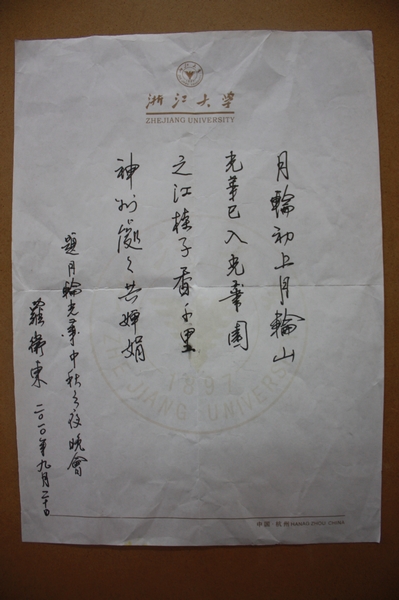 浙江大学
ZHEJIANG UNIVERSITY
月輪初上月輪山
光華已入光華園
之江桂子香千里
神州處々共嬋娟
題月輪光華中秋之夜晚會
羅衛東 二〇一〇年九月二十日
1897
ZHEJIANG UNIVERSITY
中国·杭州 HANGZHOU, CHINA